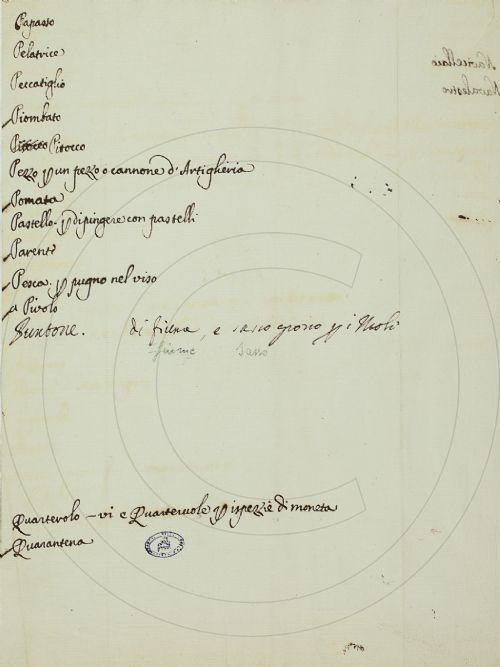 Papasso
Pelatrice
Peccatiglio
Piombato
Pitocco
Pezzo p un pezzo o cannone d'Artiglieria
Pomata
Pastello. p dipingere con pastelli
Parente
Pesca. p pugno nel viso
a Pivolo
di fiume, e sasso grosso p i Moli
fiume sasso
Quartevolo – vi e Quarteruole p ispezie di moneta
Quarantena